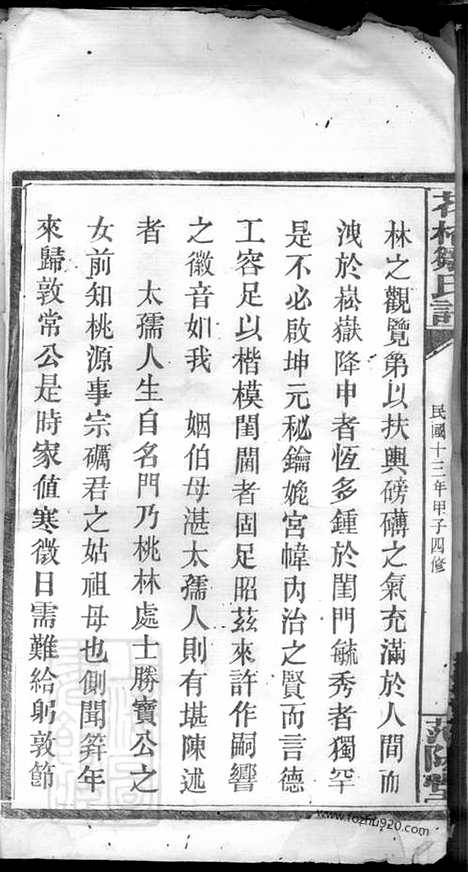 鄒氏譜
民國十三年甲子四修
范陽堂
林之觀覽第以扶輿磅礴之氣充滿於人間而
洩於崧嶽降申者恆多鍾於閨門毓秀者獨罕
是不必啟坤元秘鑰娩宮幃內治之賢而言德
工容足以楷模閨閫者固足昭茲來許作嗣響
之徽音如我 姻伯母湛太孺人則有堪陳述
者 太孺人生自名門乃桃林處士勝寶公之
女前知桃源事宗礪君之姑祖母也側聞筓年
來歸敦常公是時家值寒微日需難給躬敦節
www.fozhu920.com